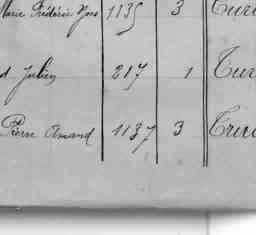 Marie Frédéric Yves 1135 3
d Julien 217 1
Pierre Amand 1137 3